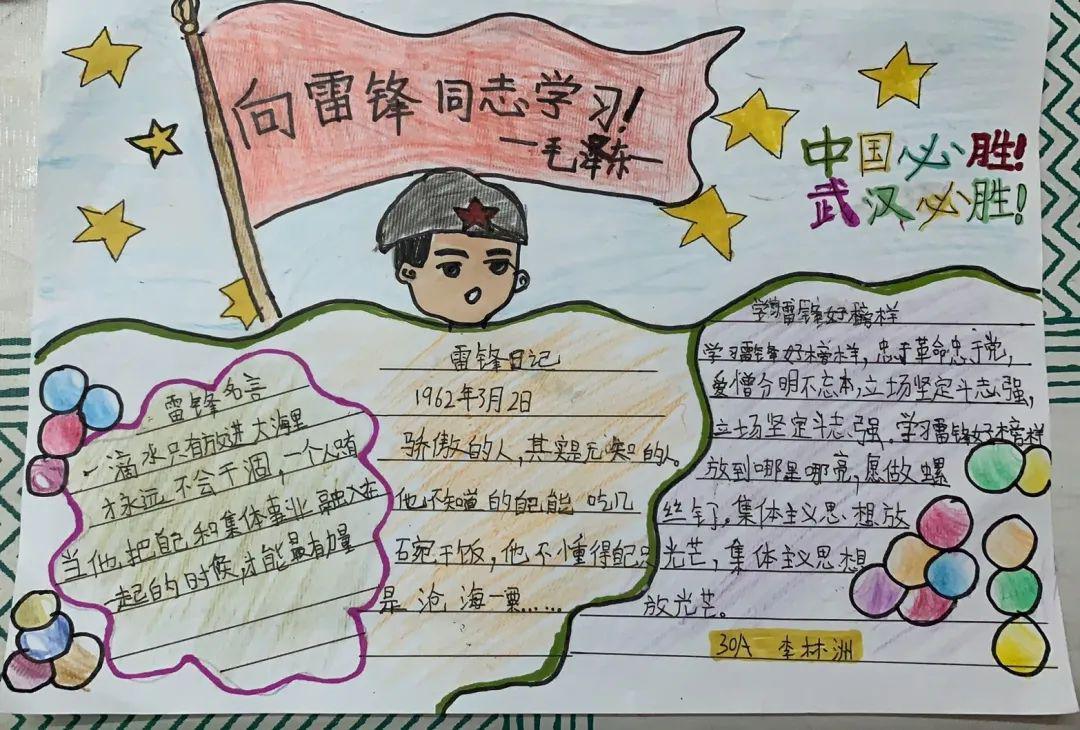 向雷锋同志学习!
—毛泽东—
中国必胜!
武汉必胜!
雷锋名言
一滴水只有放进大海里
才永远不会干涸,一个人只有
当他把自己和集体事业融入在
一起的时候,才能最有力量
雷锋日记
1962年3月2日
骄傲的人,其实是无知的人。
他不知道的自己能吃几
石宛干饭,他不懂得自己只
是沧海一粟……
学习雷锋好榜样
学习雷锋好榜样,忠于革命忠于党,
爱憎分明不忘本,立场坚定斗志强,
立场坚定斗志强,学习雷锋好榜样
放到哪里哪亮,愿做螺
丝钉。集体主义思想放
光芒,集体主义思想
放光芒。
30A 李林洲